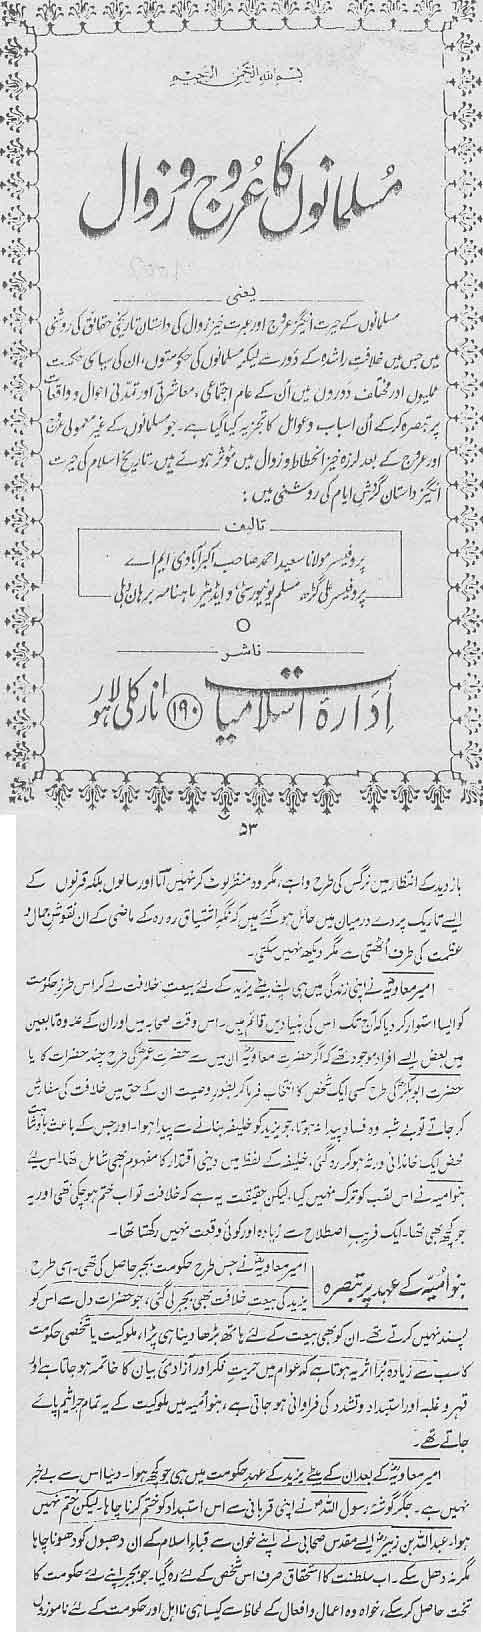 بسم الله الرحمن الرحيم
مسلمانوں کا عروج و زوال
یعنی
مسلمانوں کے حیرت انگیز عروج اور عبرت خیز زوال کی داستان تاریخی حقائق کی روشنی
میں جس میں خلافتِ راشدہ کے دور سے لیکر مسلمانوں کی حکومتوں، ان کی سیاسی حکمت
عملیوں اور مختلف دوروں میں اُن کے عام اجتماعی، معاشرتی اور تمدنی احوال و واقعات
پر تبصرہ کر کے اُن اسباب و عوامل کا تجزیہ کیا گیا ہے۔ جو مسلمانوں کے غیر معمولی عروج
اور عروج کے بعد لرزہ خیز انحطاط و زوال میں موثر ہوئے ہیں۔ تاریخ اسلام کی حیرت
انگیز داستان گردشِ ایام کی روشنی میں :
تالیف
پروفیسر مولانا سعید احمد صاحب اکبر آبادی ایم اے
پروفیسر علی گڑھ مسلم یونیورسٹی و ایڈیٹر ماہنامہ برہان دہلی
ناشر
اِدَارۂ اسلامیات ۱۹۰ انار کلی لاہور
۵۳
بازدید کے انتظار میں نرگس کی طرح وا ہے، مگر وہ منظر لوٹ کر نہیں آتا اور سالوں بلکہ قرنوں کے
ایسے تاریک پردے درمیان میں حائل ہو گئے ہیں کہ نگہِ اشتیاق رہ رہ کے ماضی کے ان نقوشِ جمال و
عظمت کی طرف اُٹھتی ہے مگر دیکھ نہیں سکتی۔
امیر معاویہؓ نے اپنی زندگی میں ہی اپنے بیٹے یزید کے لئے بیعت خلافت لے کر اس طرز حکومت
کو ایسا استوار کر دیا کہ آج تک اس کی بنیادیں قائم ہیں۔ اس وقت صحابہ میں اور ان کے علاوہ تابعین
میں بعض ایسے افراد موجود تھے کہ اگر حضرت معاویہؓ ان میں سے حضرت عمرؓ کی طرح چند حضرات کا یا
حضرت ابوبکرؓ کی طرح کسی ایک شخص کا انتخاب فرما کر بطور وصیت ان کے حق میں خلافت کی سفارش
کر جاتے تو بے شبہ وہ فساد پیدا نہ ہوتا، جو یزید کو خلیفہ بنانے سے پیدا ہوا۔ اور جس کے باعث بادشاہت
محض ایک خاندانی ورثہ ہو کر رہ گئی، خلیفہ کے لفظ میں دینی اقتدار کا مفہوم بھی شامل تھا۔ اس لئے
بنو امیہ نے اس لقب کو ترک نہیں کیا، لیکن حقیقت یہ ہے کہ خلافت تو اب ختم ہو چکی تھی اور یہ
جو کچھ بھی تھا۔ ایک فریبِ اصطلاح سے زیادہ اور کوئی وقعت نہیں رکھتا تھا۔
بنو اُمیہ کے عہد پر تبصرہ
امیر معاویہؓ نے جس طرح حکومت بجبر حاصل کی تھی۔ اسی طرح
یزید کی بیعت خلافت بھی بجبر لی گئی، جو حضرات دل سے اس کو
پسند نہیں کرتے تھے۔ ان کو بھی بیعت کے لئے ہاتھ بڑھا دینا ہی پڑا، ملوکیت یا شخصی حکومت
کا سب سے زیادہ بُرا اثر یہ ہوتا ہے کہ عوام میں حریتِ فکر اور آزادیٔ بیان کا خاتمہ ہو جاتا ہے اور
قہر و غلبہ اور استبداد و تشدد کی فراوانی ہو جاتی ہے، بنو اُمیہ میں ملوکیت کے یہ تمام جراثیم پائے
جاتے تھے۔
امیر معاویہؓ کے بعد ان کے بیٹے یزید کے عہدِ حکومت میں ہی جو کچھ ہوا۔ دنیا اس سے بے خبر
نہیں ہے۔ جگر گوشۂ رسول اللہ نے اپنی قربانی سے اس استبداد کو ختم کرنا چاہا۔ لیکن ختم نہیں
ہوا۔ عبداللہ بن زبیرؓ ایسے مقدس صحابی نے اپنے خون سے قباءِ اسلام کے ان دھبوں کو دھونا چاہا
مگر نہ دھل سکے۔ اب سلطنت کا استحقاق صرف اس شخص کے لئے رہ گیا۔ جو بجبر اپنے لئے حکومت کا
تخت حاصل کر سکے، خواہ وہ اعمال و افعال کے لحاظ سے کیسا ہی نا اہل اور حکومت کے لئے ناموزوں